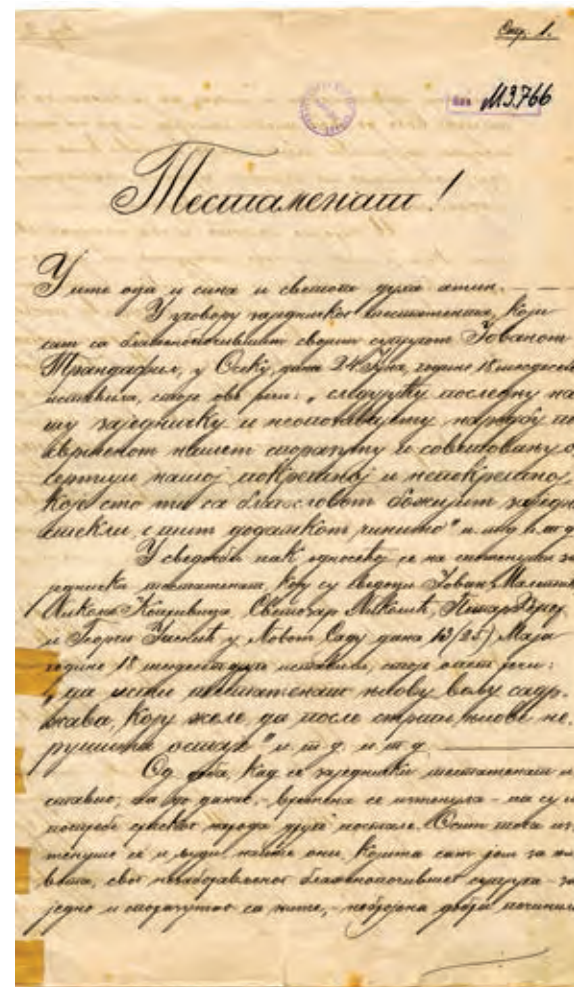 Стр. 1.
М3.766
Тестаменат!
У име оца и сина и светога духа амин.
У уговору заједничког тестамента, који
сам са блаженопочившим својим супругом Јованом
Трандафил, у Осеку, дана 24 Јуна, године 18
иставила, стоје ове речи: „следујућу последну на
шу заједничку и неопозивућу наредбу по
свршеном нашем споразуму и совјетовању о
целој нашој покретној и непокретној,
коју смо ми са благословом божијим заједно
стекли, с тим додатком чинимо" и. т. д. и. т. д.
У сведочби пак односећој се на споменути за
једнички тестаменат, коју су сведоци Јован
Никола Светозар Милетић, Петар
и Георги у Новом Саду дана 13/25) Маја
године 18 шездесет друге иставили, стоје опет речи:
„да исти тестаменат њиову вољу садр-
жава, коју желе, да после смрти њиове не-
рушима остаје" и т. д. и. т. д.
Од доба, кад се заједнички тестаменат и
ставио, па до данас, - времена се изменула - па су и
потребе српског народа друге постале. Осим тога из
менуше се и људи. нашто они, којима сам још за жи
вота, свог незаборављеног блаженопочившег супруга - за
једно и споразумно са њиме, - небројена добра починила